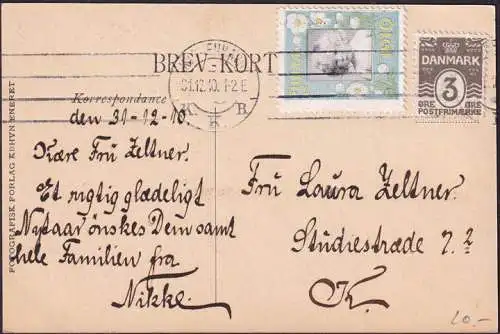 BREV-KORT
31.12.10. 1-2 E
K. B.
JULEN 1910
DANMARK
3
ØRE ØRE
POSTFRIMÆRKE
Korrespondance
den 31-12-10.
Kære Frú Zeltner.
Et rigtig glædeligt
Nytaar ønskes Dem samt
hele Familien fra
Nikke.
Frú Laura Zeltner.
Studiestræde 7.2
K.
FOTOGRAFISK FORLAG KBHVN ENERET
20.-